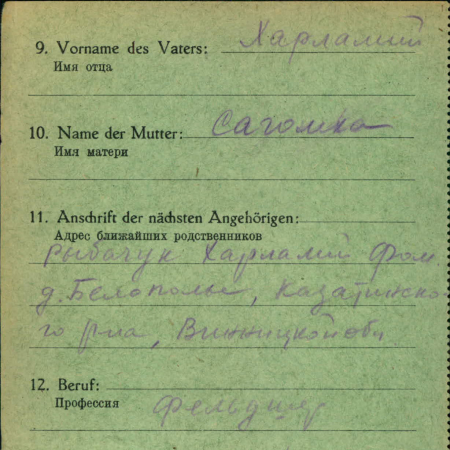 9. Vorname des Vaters: Харламий
Имя отца
10. Name der Mutter: Сагомка
Имя матери
11. Anschrift der nächsten Angehörigen:
Адрес ближайших родственников
Рыбачук Харламий Фом
д. Белополье, Казатинско
го р-на, Винницкой обл
12. Beruf:
Профессия
Фельдшер